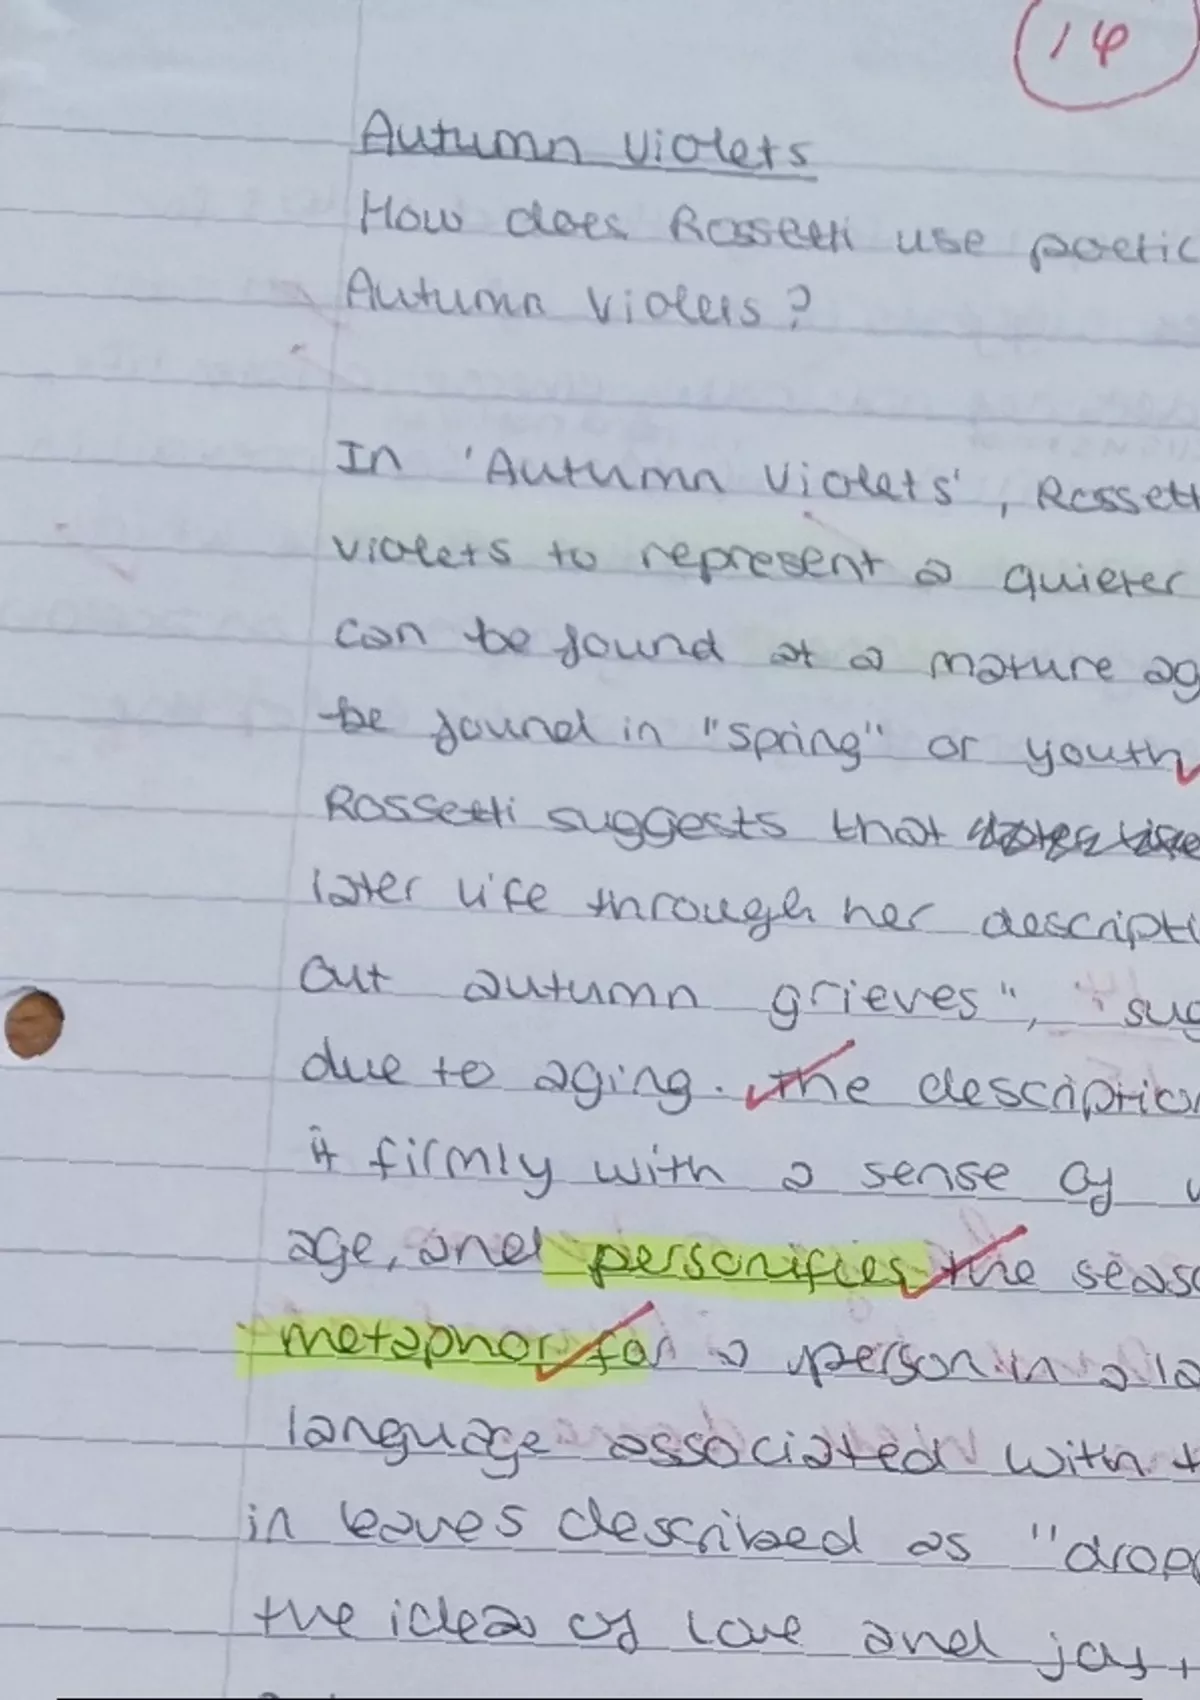 14
Autumn Violets
How does Rossetti use poetic
Autumn Violets?
In 'Autumn Violets', Rossett
violets to represent a quieter
can be found at a mature ag
be found in "spring" or youth
Rossetti suggests that
later life through her descripti
out autumn grieves", sug
due to aging. The description
it firmly with a sense of
age, and personifies the seas
metaphor for a person in a la
language associated with t
in leaves described as "drop
the idea of love and joy,